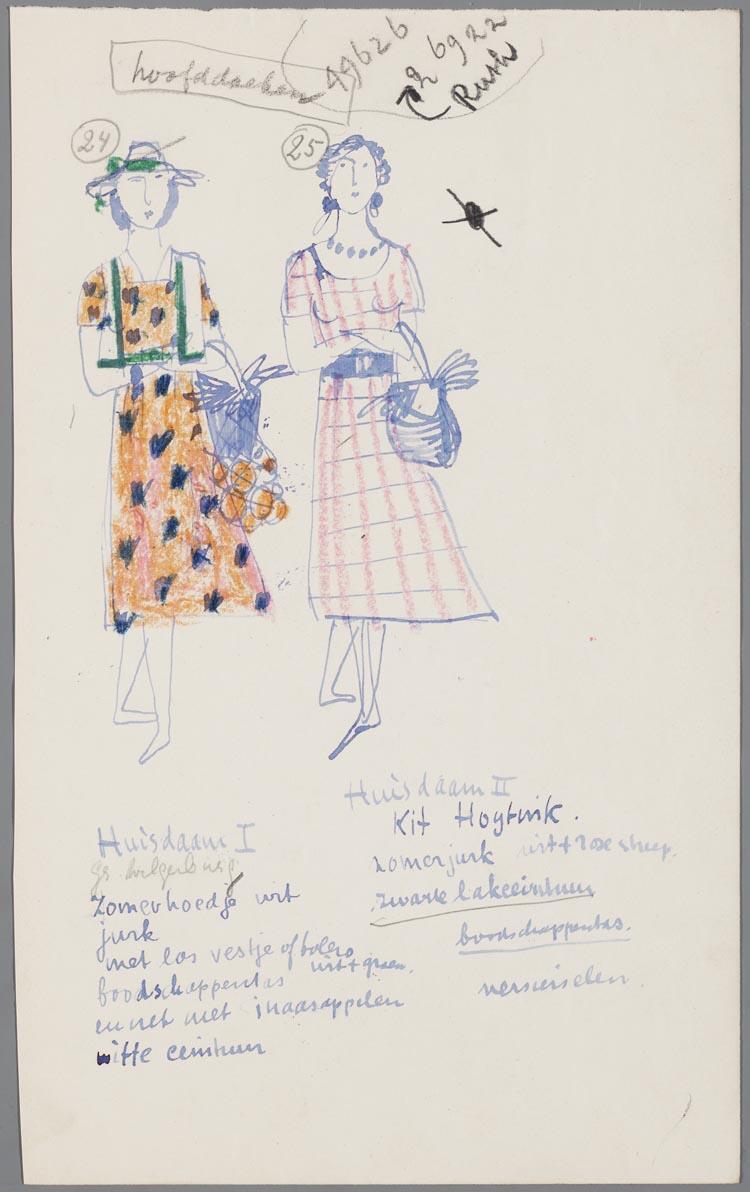 hoofddoeken
49626
26922
Ruth
24
25
Huisdaam I
Zomerhoedje wit
jurk
met los vestje of bolero
wit + groen.
boodschappentas
en net met sinaasappelen
witte ceintuur
Huisdaam II
Kit
zomerjurk wit + rose streep.
zwarte lakceintuur
boodschappentas.
versierselen.